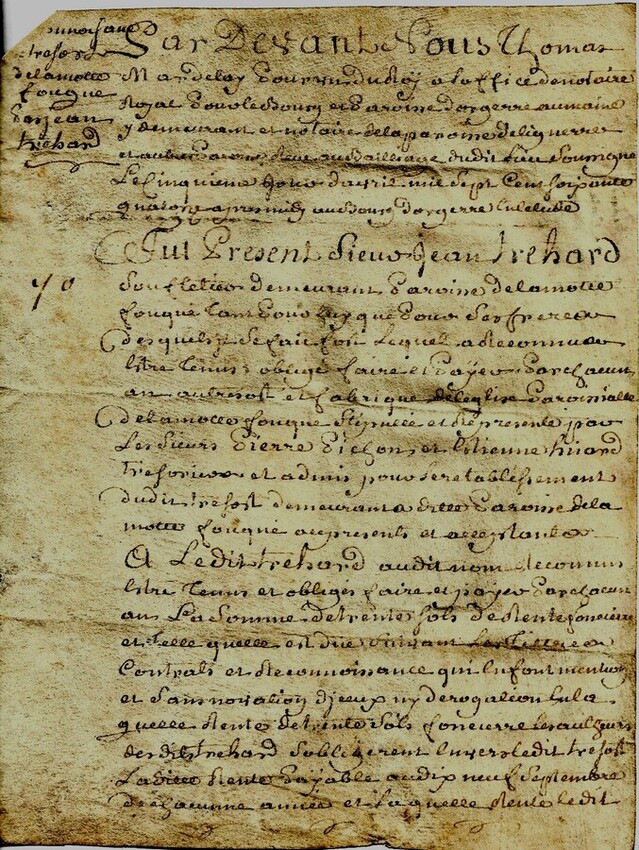 tresor
delamotte
fouque
par jean
trehard
Par Devant Nous Thomas
Mardelay Pourvu du Roy a loffice de notaire
Royal Pour le Bourg et Paroisse dorgerre au maine
y demeurant et notaire de la paroisse de lignerre
et autres Bailliage dudit lieu Soussigne
Le Cinquieme Jour davril mil Sept Cent Soixante
quatorze apres midy au Bourg dorgerre
Fut Present Sieur Jean trehard
demeurant Paroisse delamotte
fouque tant Pour luy que Pour Ses freres
desquels il Se fait fort Lequel a Reconnu
Estre tenus obligé faire et Payer Par Chacun
an au tresor et fabrique de leglise Paroissialle
delamotte fouque Stipullée et Representé par
Les Sieurs Pierre Pichon et Etienne huard
tresoriers et admis pour le retablissement
dudit tresor demeurant a ditte Paroisse de la
motte fouque aupresents et acceptants
A Ledit trehard audit nom Reconnu
Estre tenus et obligés faire et payer Par Chacun
an La Somme de trente Sols de Rente fonciere
et telle quelle est düe Suivant Les Tittres
Contrats et Reconnoissance qui en font mention
et Sans novation djceux ny derogation
quelle Rente de trente Sols fonciere
desdits trehard Sobligerent Envers ledit tresor
Laditte Rente Payable au dix neuf Septembre
de Chacunne année et Laquelle Rente Ledit